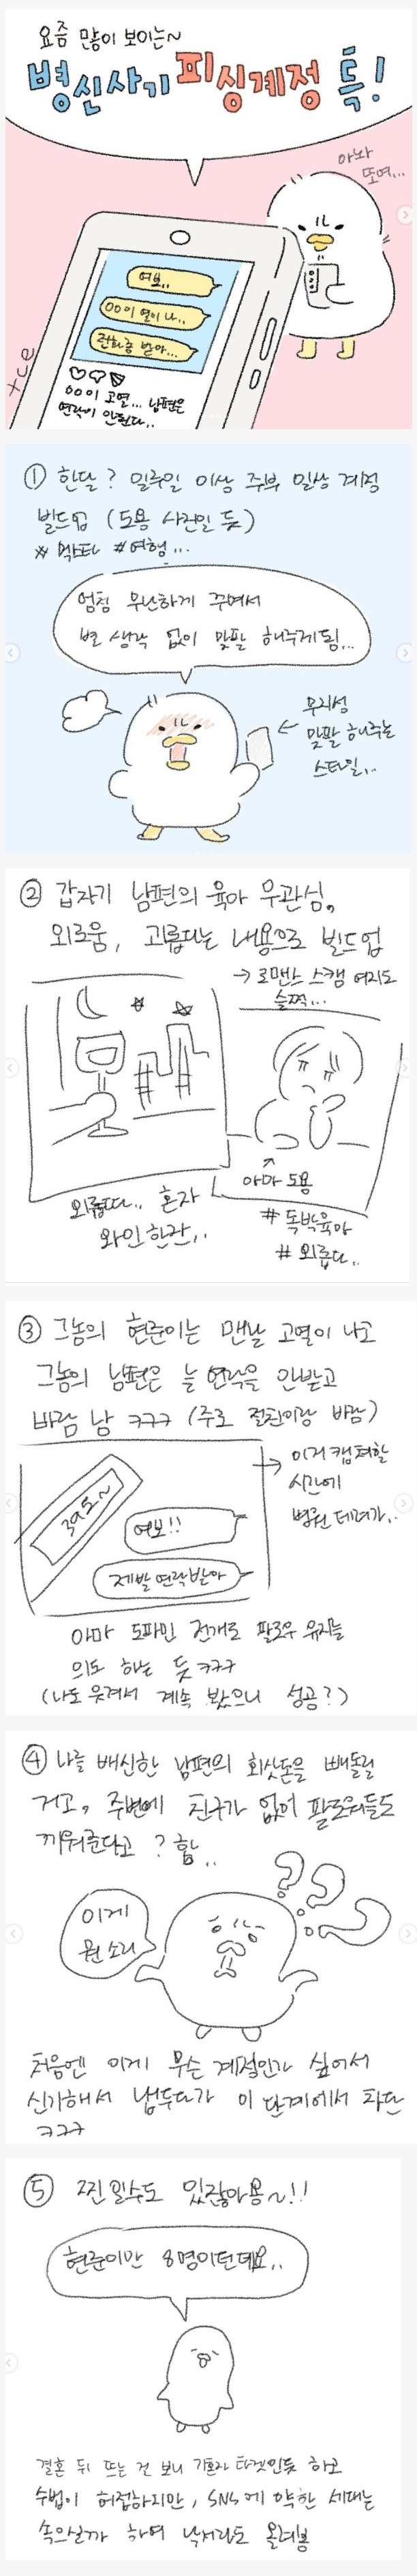 요즘 많이 보이는~
병신사기 피싱계정 특!
아놔
또여...
여보..
OO이 열이 나..
전화좀 받아...
OO이 고열... 남편은
연락이 안된다..
① 한달? 일주일 이상 주부 일상 계정
빌드업 (도용 사진일 듯)
#먹스타 #여행...
엄청 무난하게 꾸며서
별 생각 없이 맞팔 해주게됨...
무지성
맞팔 해주는
스타일..
② 갑자기 남편의 육아 무관심,
외로움, 괴롭다는 내용으로 빌드업
→ 로맨스 스캠 여지도
슬쩍...
외롭따.. 혼자
와인한잔..
아마 도용
#독박육아
#외롭다..
③ 그놈의 현준이는 맨날 고열이 나고
그놈의 남편은 늘 연락을 안받고
바람 남 ㅋㅋㅋ (주로 절친이랑 바람)
39.5~
여보!!
제발 연락받아
→ 이거 캡쳐할
시간에
병원 데려가..
아마 도파민 전개로 팔로우 유지를
의도 하는 듯 ㅋㅋㅋ
(나도 웃겨서 계속 봤으니 성공?)
④ 나를 배신한 남편의 회삿돈을 빼돌릴
거고, 주변에 친구가 없어 팔로워들도
끼워준다고? 함..
???
이게
뭔 소리
처음엔 이게 무슨 계정인가 싶어서
신기해서 냅두다가 이 단계에서 차단
ㅋㅋㅋ
⑤ 찐일수도 있잖아용~!!
현준이만 8명이던데요..
결혼 뒤 뜨는 건 보니 기혼자 타겟인듯 하고
수법이 허접하지만, SNS에 약한 세대는
속으실까 하여 낙서라도 올려봄